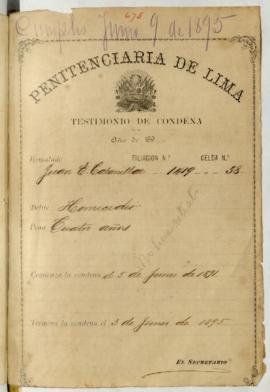 Cumplió Junio 9 de 1895
675
PENITENCIARIA DE LIMA
TESTIMONIO DE CONDENA
Año de 18
Rematado FILIACION N.° CELDA N.°
Juan E. 1419 38
Delito Homicidio
Pena Cuatro años
Comienza la condena el 5 de Junio de 1891.
Termina la condena el 5 de Junio de 1895
EL SECRETARIO